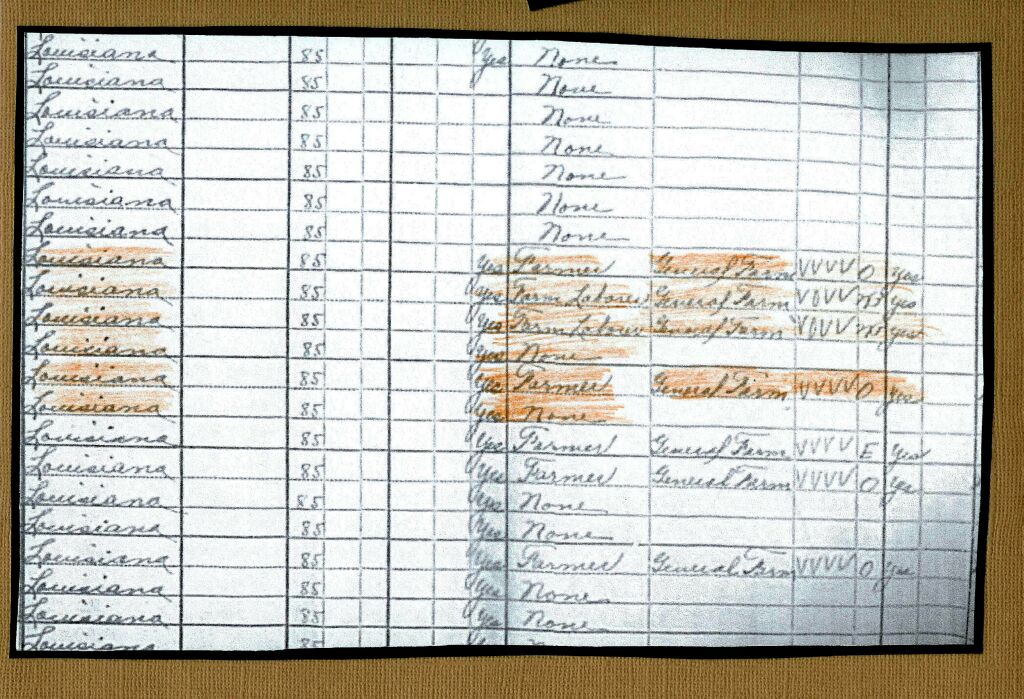 Louisiana 85 Yes None
Louisiana 85 None
Louisiana 85 None
Louisiana 85 None
Louisiana 85 None
Louisiana 85 None
Louisiana 85 None
Louisiana 85 Yes Farmer General Farm VVVV O Yes
Louisiana 85 Yes Farm Laborer General Farm VOVV Yes
Louisiana 85 Yes Farm Laborer General Farm VOVV Yes
Louisiana 85 Yes None
Louisiana 85 Yes Farmer General Farm VVVV O Yes
Louisiana 85 Yes None
Louisiana 85 Yes Farmer General Farm VVVV E Yes
Louisiana 85 Yes Farmer General Farm VVVV O Yes
Louisiana 85 Yes None
Louisiana 85 Yes None
Louisiana 85 Yes Farmer General Farm VVVV O Yes
Louisiana 85 Yes None
Louisiana 85 Yes None
Louisiana 85 Yes